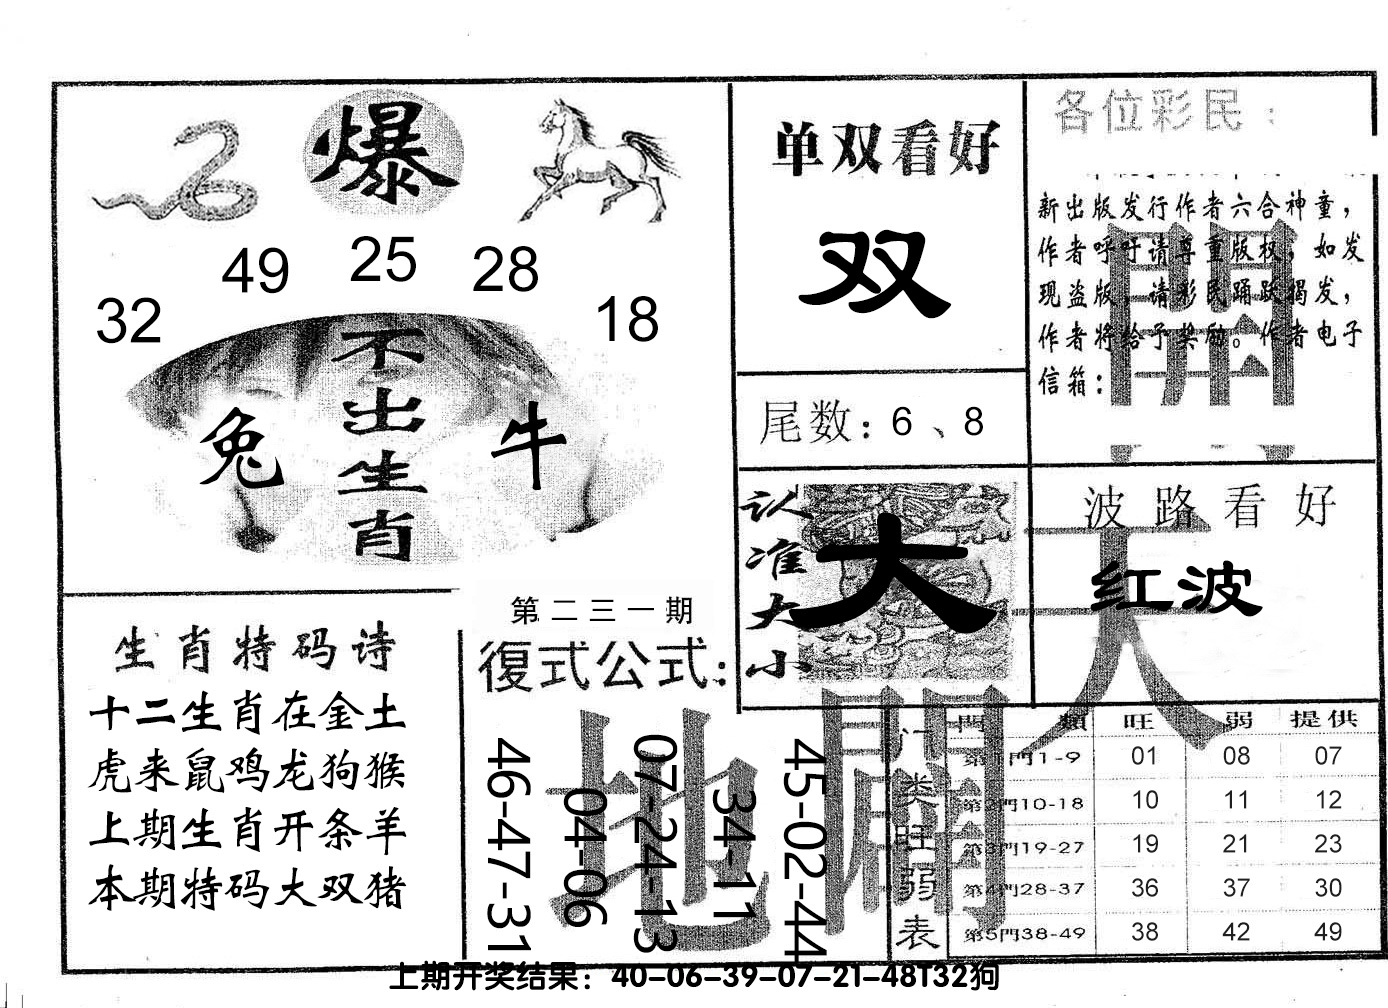 爆
49 25 28
32 18
不出生肖
兔 牛
单双看好
双
尾数：6、8
各位彩民：
新出版发行作者六合神童，
作者呼吁请尊重版权，如发
现盗版，请彩民踊跃揭发，
作者将给予奖励。作者电子
信箱：
認准大小
大
波路看好
红波
天
開
地
闢
生肖特码诗
十二生肖在金土
虎来鼠鸡龙狗猴
上期生肖开条羊
本期特码大双猪
第二三一期
復式公式：
46-47-31
04-06
07-24-13
34-11
45-02-44
门类旺弱表
門類 旺 弱 提供
第1門1-9 01 08 07
第2門10-18 10 11 12
第3門19-27 19 21 23
第4門28-37 36 37 30
第5門38-49 38 42 49
上期开奖结果：40-06-39-07-21-48T32狗